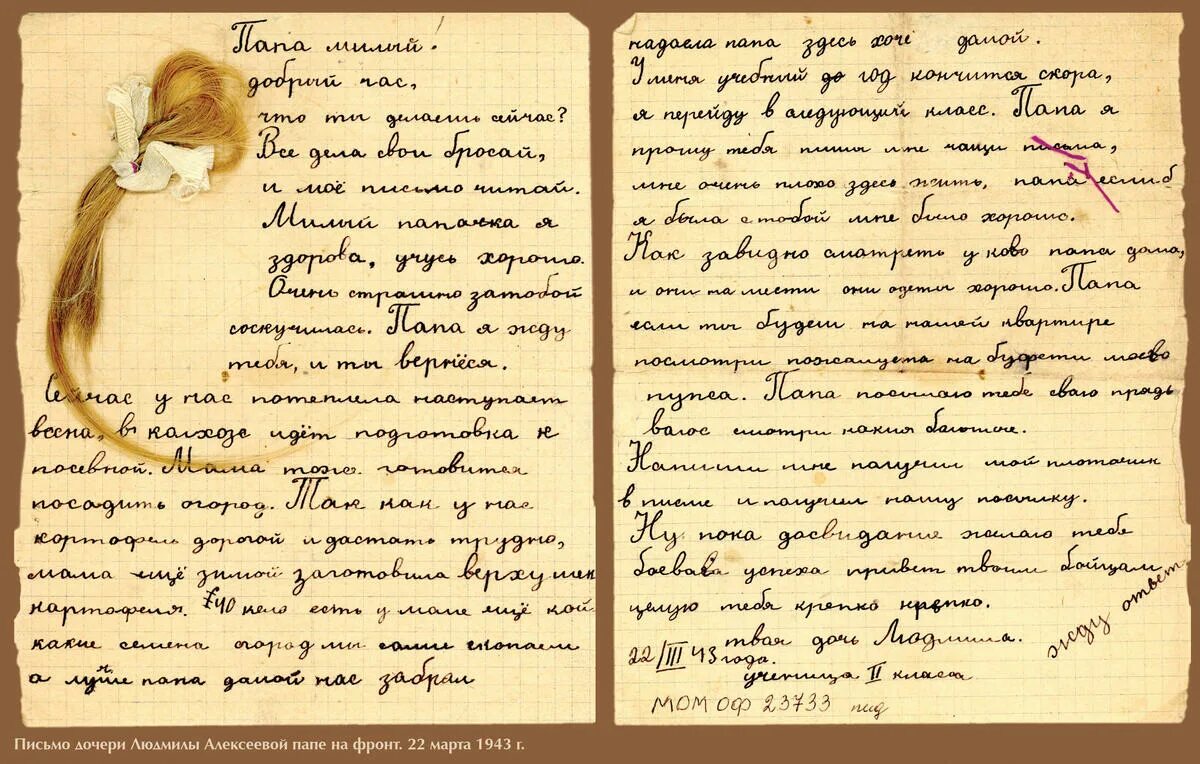 Папа милый!
добрый час,
что ты делаешь сейчас?
Все дела свои бросай,
и моё письмо читай.
Милый папачка я
здорова, учусь хорошо.
Очень страшно затобой
соскучилась. Папа я жду
тебя, и ты вернёся.
Сейчас у нас потеплела наступает
весна, в калхозе идёт подготовка к
посевной. Мама тоже готовится
посадить огород. Так как у нас
кортофель дорогой и дастать трудно,
мама ещё зимой заготовила верхушек
картофеля. 40 кело есть у маме ещё кой
какие семена огород мы сами скопаем
а лучше папа дамой нас забрал
надаела папа здесь хоче дамой.
У меня учебний до год кончится скора,
я перейду в следующий класс. Папа я
прошу тебя пиши мне чащи письма,
мне очень плохо здесь жить, папа если б
я была с тобой мне было хорошо.
Как завидно смотреть у ково папа дома,
и они на мести они одеты хорошо. Папа
если ты будеш на нашей квартире
посмотри пожалуста на буфети моево
пупса. Папа посылаю тебе сваю прядь
валос смотри какия балшые.
Напиши мне палучил мой платочик
в писме и палучил нашу посылку.
Ну пока досвидание желаю тебе
боевова успеха привет твоим бойцам
целую тебя крепко крепко.
твая дочь Людмила.
22/III 43 года.
ученица II класса
жду ответ
МОМ ОФ 23733
Письмо дочери Людмилы Алексеевой папе на фронт. 22 марта 1943 г.